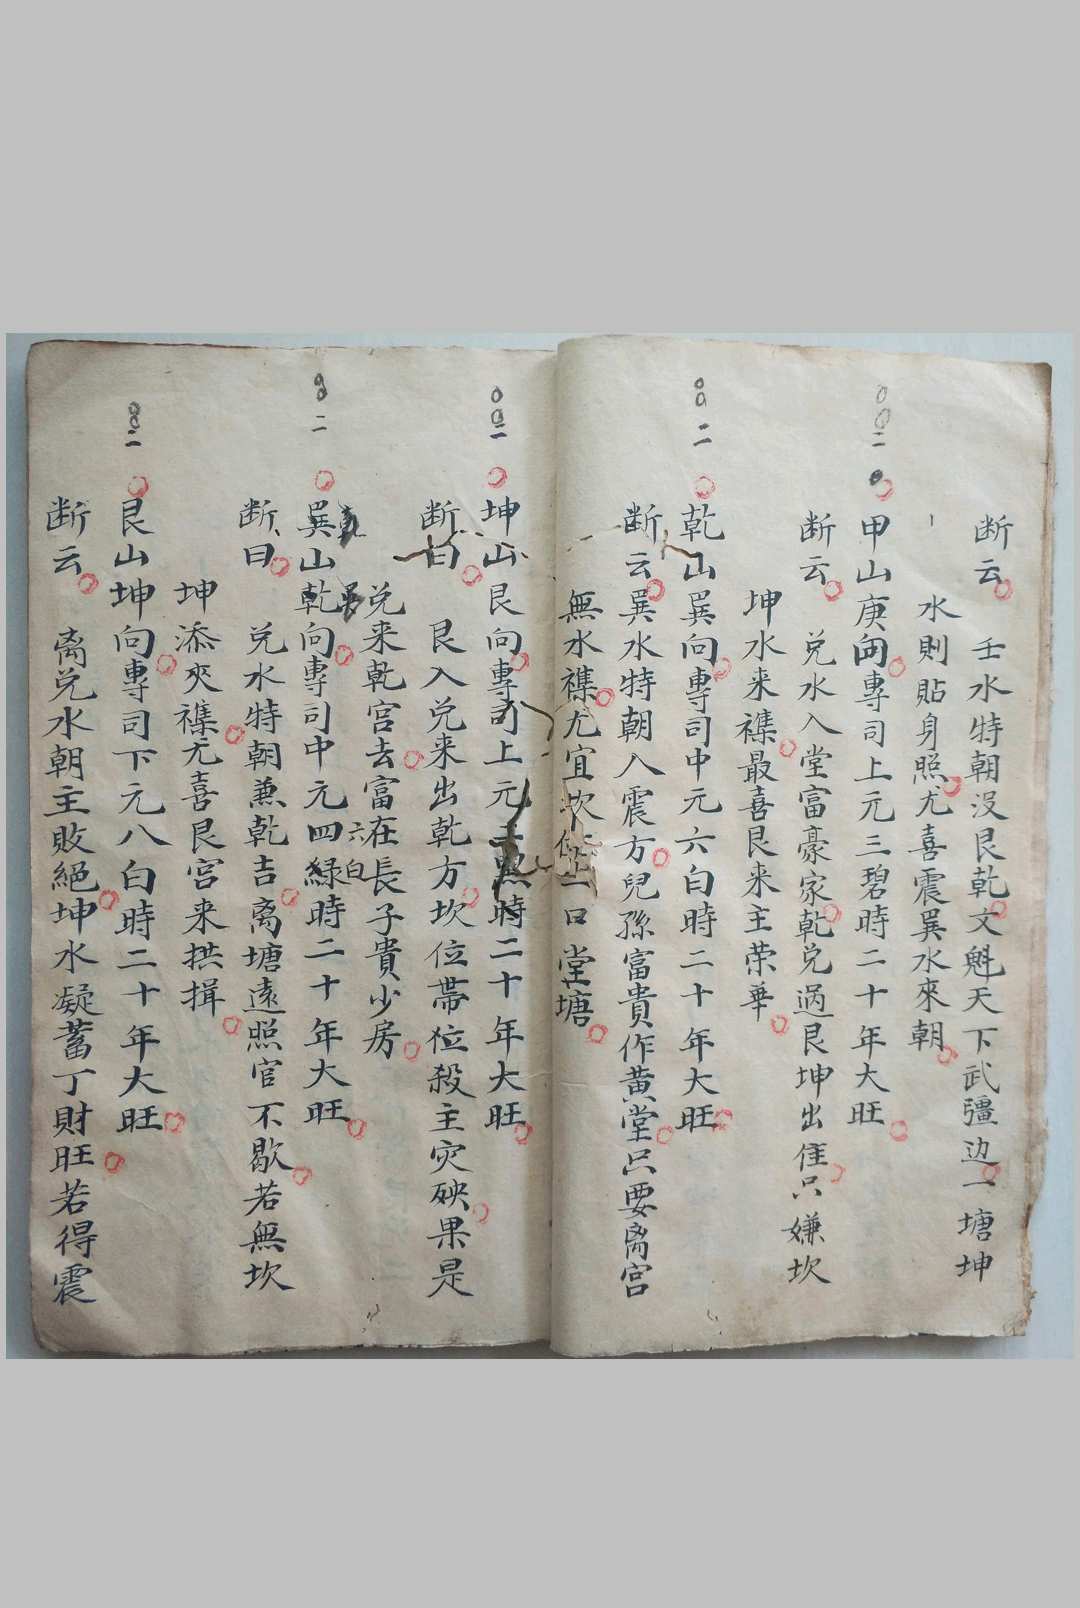 断云 壬水特朝没艮乾文魁天下武彊边一塘坤
水則貼身照尤喜震巽水來朝
甲山庚向專司上元三碧時二十年大旺
断云 兑水入堂富豪家乾兑過艮坤出佳只嫌坎
坤水来襍最喜艮来主荣華
乾山巽向專司中元六白時二十年大旺
断云巽水特朝入震方兒孫富貴作黄堂只要离宫
無水襍尤宜坎位一口堂塘
坤山艮向專司上元二黑時二十年大旺
断曰 艮入兑来出乾方坎位带位殺主灾殃果是
兑来乾宫去富在長子貴少房
巽山乾向專司中元四綠時二十年大旺
六白
断曰 兑水特朝兼乾吉离塘遠照官不歇若無坎
坤添夾襍尤喜艮宫来拱揖
艮山坤向專司下元八白時二十年大旺
断云 离兑水朝主敗絕坤水凝蓄丁財旺若得震